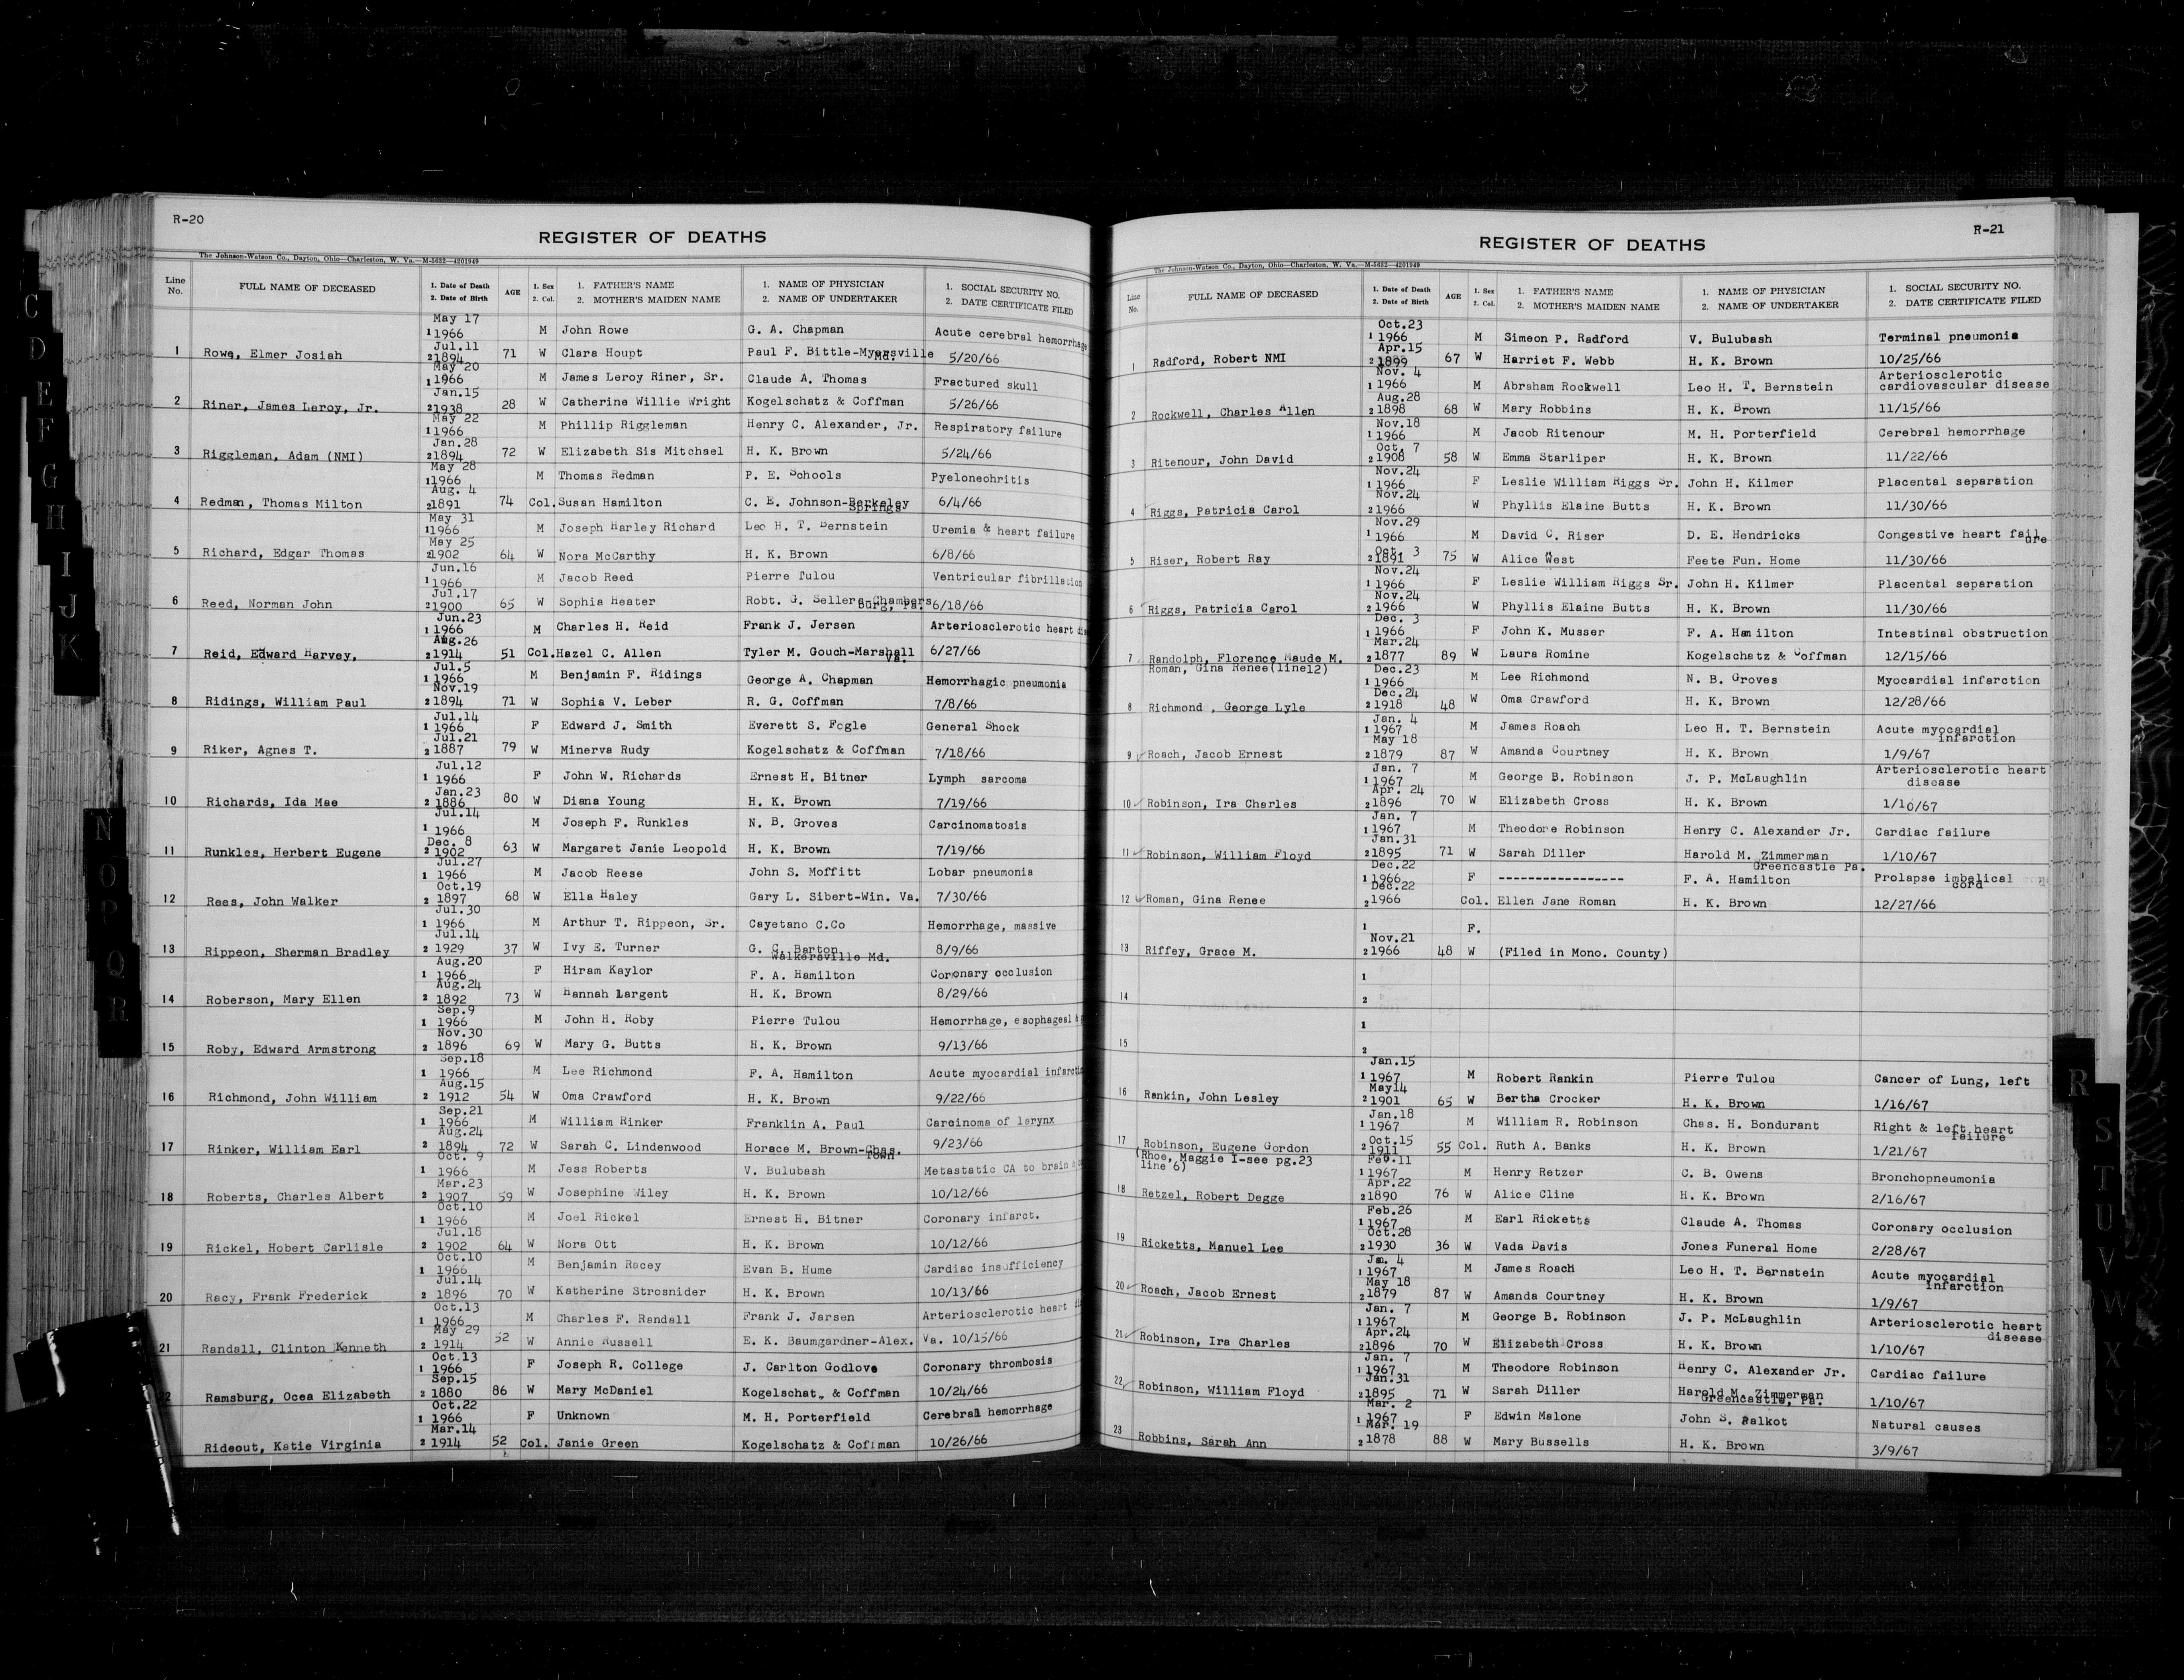 R-20
REGISTER OF DEATHS
The Johnson-Watson Co., Dayton, Ohio—Charleston, W. Va.—M-5632—4201949
Line No. FULL NAME OF DECEASED 1. Date of Death 2. Date of Birth AGE 1. Sex 2. Col. 1. FATHER'S NAME 2. MOTHER'S MAIDEN NAME 1. NAME OF PHYSICIAN 2. NAME OF UNDERTAKER 1. SOCIAL SECURITY NO. 2. DATE CERTIFICATE FILED
May 17
1 1966 M John Rowe G. A. Chapman Acute cerebral hemorrhage
Jul.11
1 Rowe, Elmer Josiah 2 1894 71 W Clara Houpt Paul F. Bittle-Myersville Md. 5/20/66
May 20
1 1966 M James Leroy Riner, Sr. Claude A. Thomas Fractured skull
Jan.15
2 Riner, James Leroy, Jr. 2 1938 28 W Catherine Willie Wright Kogelschatz & Coffman 5/26/66
May 22
1 1966 M Phillip Riggleman Henry C. Alexander, Jr. Respiratory failure
Jan.28
3 Riggleman, Adam (NMI) 2 1894 72 W Elizabeth Sis Mitchael H. K. Brown 5/24/66
May 28
1 1966 M Thomas Redman P. E. Schools Pyeloneohritis
Aug. 4
4 Redman, Thomas Milton 2 1891 74 Col. Susan Hamilton C. E. Johnson-Berkeley Springs 6/4/66
May 31
1 1966 M Joseph Harley Richard Leo H. T. Bernstein Uremia & heart failure
May 25
5 Richard, Edgar Thomas 2 1902 64 W Nora McCarthy H. K. Brown 6/8/66
Jun.16
1 1966 M Jacob Reed Pierre Tulou Ventricular fibrillation
Jul.17
6 Reed, Norman John 2 1900 65 W Sophia Heater Robt. G. Sellers-Chambers burg, Pa. 6/18/66
Jun.23
1 1966 M Charles H. Reid Frank J. Jersen Arteriosclerotic heart dis
Aug.26
7 Reid, Edward Harvey, 2 1914 51 Col. Hazel C. Allen Tyler M. Gouch-Marshall Va. 6/27/66
Jul.5
1 1966 M Benjamin F. Ridings George A. Chapman Hemorrhagic pneumonia
Nov.19
8 Ridings, William Paul 2 1894 71 W Sophia V. Leber R. G. Coffman 7/8/66
Jul.14
1 1966 F Edward J. Smith Everett S. Fogle General Shock
Jul.21
9 Riker, Agnes T. 2 1887 79 W Minerva Rudy Kogelschatz & Coffman 7/18/66
Jul.12
1 1966 F John W. Richards Ernest H. Bitner Lymph sarcoma
Jan.23
10 Richards, Ida Mae 2 1886 80 W Diana Young H. K. Brown 7/19/66
Jul.14
1 1966 M Joseph F. Runkles N. B. Groves Carcinomatosis
Dec. 8
11 Runkles, Herbert Eugene 2 1902 63 W Margaret Janie Leopold H. K. Brown 7/19/66
Jul.27
1 1966 M Jacob Reese John S. Moffitt Lobar pneumonia
Oct.19
12 Rees, John Walker 2 1897 68 W Ella Haley Gary L. Sibert-Win. Va. 7/30/66
Jul.30
1 1966 M Arthur T. Rippeon, Sr. Cayetano C.Co Hemorrhage, massive
Jul.14
13 Rippeon, Sherman Bradley 2 1929 37 W Ivy E. Turner G. C. Barton Walkersville Md. 8/9/66
Aug.20
1 1966 F Hiram Kaylor F. A. Hamilton Coronary occlusion
Aug.24
14 Roberson, Mary Ellen 2 1892 73 W Hannah Largent H. K. Brown 8/29/66
Sep.9
1 1966 M John H. Roby Pierre Tulou Hemorrhage, esophageal
Nov.30
15 Roby, Edward Armstrong 2 1896 69 W Mary G. Butts H. K. Brown 9/13/66
Sep.18
1 1966 M Lee Richmond F. A. Hamilton Acute myocardial infarction
Aug.15
16 Richmond, John William 2 1912 54 W Oma Crawford H. K. Brown 9/22/66
Sep.21
1 1966 M William Rinker Franklin A. Paul Carcinoma of larynx
Aug.24
17 Rinker, William Earl 2 1894 72 W Sarah C. Lindenwood Horace M. Brown-Chas. Town 9/23/66
Oct. 9
1 1966 M Jess Roberts V. Bulubash Metastatic CA to brain
Mar.23
18 Roberts, Charles Albert 2 1907 59 W Josephine Wiley H. K. Brown 10/12/66
Oct.10
1 1966 M Joel Rickel Ernest H. Bitner Coronary infarct.
Jul.18
19 Rickel, Hobert Carlisle 2 1902 64 W Nora Ott H. K. Brown 10/12/66
Oct.10
1 1966 M Benjamin Racey Evan B. Hume Cardiac insufficiency
Jul.14
20 Racy, Frank Frederick 2 1896 70 W Katherine Strosnider H. K. Brown 10/13/66
Oct.13
1 1966 M Charles F. Randall Frank J. Jarsen Arteriosclerotic heart
May 29
21 Randall, Clinton Kenneth 2 1914 52 W Annie Russell E. K. Baumgardner-Alex. Va. 10/15/66
Oct.13
1 1966 F Joseph R. College J. Carlton Godlove Coronary thrombosis
Sep.15
22 Ramsburg, Ocea Elizabeth 2 1880 86 W Mary McDaniel Kogelschat. & Coffman 10/24/66
Oct.22
1 1966 F Unknown M. H. Porterfield Cerebral hemorrhage
Mar.14
Rideout, Katie Virginia 2 1914 52 Col. Janie Green Kogelschatz & Coffman 10/26/66
R-21
REGISTER OF DEATHS
The Johnson-Watson Co., Dayton, Ohio—Charleston, W. Va.—M-5632—4201949
Line No. FULL NAME OF DECEASED 1. Date of Death 2. Date of Birth AGE 1. Sex 2. Col. 1. FATHER'S NAME 2. MOTHER'S MAIDEN NAME 1. NAME OF PHYSICIAN 2. NAME OF UNDERTAKER 1. SOCIAL SECURITY NO. 2. DATE CERTIFICATE FILED
Oct.23
1 1966 M Simeon P. Radford V. Bulubash Terminal pneumonia
Apr.15
1 Radford, Robert NMI 2 1899 67 W Harriet F. Webb H. K. Brown 10/25/66
Nov. 4
1 1966 M Abraham Rockwell Leo H. T. Bernstein Arteriosclerotic cardiovascular disease
Aug.28
2 Rockwell, Charles Allen 2 1898 68 W Mary Robbins H. K. Brown 11/15/66
Nov.18
1 1966 M Jacob Ritenour M. H. Porterfield Cerebral hemorrhage
Oct. 7
3 Ritenour, John David 2 1908 58 W Emma Starliper H. K. Brown 11/22/66
Nov.24
1 1966 F Leslie William Riggs Sr. John H. Kilmer Placental separation
Nov.24
4 Riggs, Patricia Carol 2 1966 W Phyllis Elaine Butts H. K. Brown 11/30/66
Nov.29
1 1966 M David C. Riser D. E. Hendricks Congestive heart failure
Oct. 3
5 Riser, Robert Ray 2 1891 75 W Alice West Feete Fun. Home 11/30/66
Nov.24
1 1966 F Leslie William Riggs Sr. John H. Kilmer Placental separation
Nov.24
6 Riggs, Patricia Carol 2 1966 W Phyllis Elaine Butts H. K. Brown 11/30/66
Dec. 3
1 1966 F John K. Musser F. A. Hamilton Intestinal obstruction
Mar.24
7 Randolph, Florence Maude M. 2 1877 89 W Laura Romine Kogelschatz & Coffman 12/15/66
Roman, Gina Renee(line12)
Dec.23
1 1966 M Lee Richmond N. B. Groves Myocardial infarction
Dec.24
8 Richmond , George Lyle 2 1918 48 W Oma Crawford H. K. Brown 12/28/66
Jan. 4
1 1967 M James Roach Leo H. T. Bernstein Acute myocardial infarction
May 18
9 Roach, Jacob Ernest 2 1879 87 W Amanda Courtney H. K. Brown 1/9/67
Jan. 7
1 1967 M George B. Robinson J. P. McLaughlin Arteriosclerotic heart disease
Apr. 24
10 Robinson, Ira Charles 2 1896 70 W Elizabeth Cross H. K. Brown 1/10/67
Jan. 7
1 1967 M Theodore Robinson Henry C. Alexander Jr. Cardiac failure
Jan.31
11 Robinson, William Floyd 2 1895 71 W Sarah Diller Harold M. Zimmerman Greencastle Pa. 1/10/67
Dec.22
1 1966 F ----------------- F. A. Hamilton Prolapse imbelical cord
Dec.22
12 Roman, Gina Renee 2 1966 Col. Ellen Jane Roman H. K. Brown 12/27/66
1 F.
Nov.21
13 Riffey, Grace M. 2 1966 48 W (Filed in Mono. County)
1
14 2
1
15 2
Jan.15
1 1967 M Robert Rankin Pierre Tulou Cancer of Lung, left
May14
16 Rankin, John Lesley 2 1901 65 W Bertha Crocker H. K. Brown 1/16/67
Jan.18
1 1967 M William R. Robinson Chas. H. Bondurant Right & left heart failure
Oct.15
17 Robinson, Eugene Gordon 2 1911 55 Col. Ruth A. Banks H. K. Brown 1/21/67
(Rhoe, Maggie I-see pg.23 line 6)
Feb.11
1 1967 M Henry Retzer C. B. Owens Bronchopneumonia
Apr.22
18 Retzel, Robert Degge 2 1890 76 W Alice Cline H. K. Brown 2/16/67
Feb.26
1 1967 M Earl Ricketts Claude A. Thomas Coronary occlusion
Oct.28
19 Ricketts, Manuel Lee 2 1930 36 W Vada Davis Jones Funeral Home 2/28/67
Jan. 4
1 1967 M James Roach Leo H. T. Bernstein Acute myocardial infarction
May 18
20 Roach, Jacob Ernest 2 1879 87 W Amanda Courtney H. K. Brown 1/9/67
Jan. 7
1 1967 M George B. Robinson J. P. McLaughlin Arteriosclerotic heart disease
Apr.24
21 Robinson, Ira Charles 2 1896 70 W Elizabeth Cross H. K. Brown 1/10/67
Jan. 7
1 1967 M Theodore Robinson Henry C. Alexander Jr. Cardiac failure
Jan.31
22 Robinson, William Floyd 2 1895 71 W Sarah Diller Harold M. Zimmerman Greencastle, Pa. 1/10/67
Mar. 2
1 1967 F Edwin Malone John S. Palkot Natural causes
Mar. 19
23 Robbins, Sarah Ann 2 1878 88 W Mary Bussells H. K. Brown 3/9/67
C
D
E
F
G
H
I
J
K
N
O
P
Q
R
R
S
T
U
V
W
X
Y